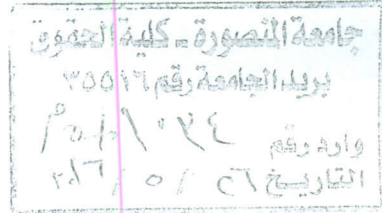 جامعة المنصورة - كلية الحقوق
بريد الجامعة رقم ٣٥٥١٦
وارد رقم
التاريخ ٢٦ / ٥ /